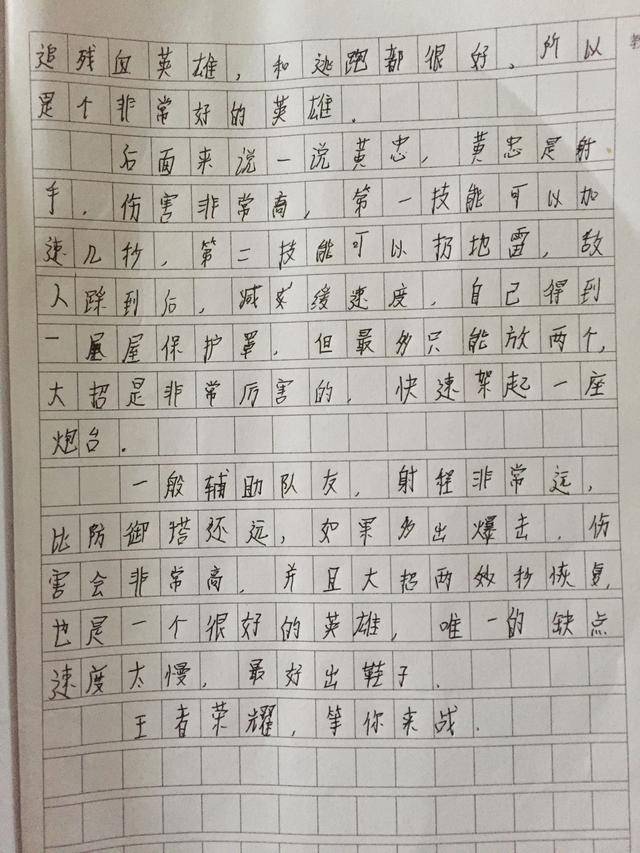 追残血英雄，和逃跑都很好，所以
是个非常好的英雄．
后面来说一说黄忠，黄忠是射
手，伤害非常高，第一技能可以加
速几秒，第二技能可以扔地雷，敌
人踩到后，减缓速度，自己得到
一层屋保护罩，但最多只能放两个，
大招是非常厉害的，快速架起一座
炮台．
一般辅助队友，射程非常远，
比防御塔还远，如果多出爆击，伤
害会非常高，并且大招两效秒恢复，
也是一个很好的英雄，唯一的缺点
速度太慢，最好出鞋子．
王者荣耀，等你来战．